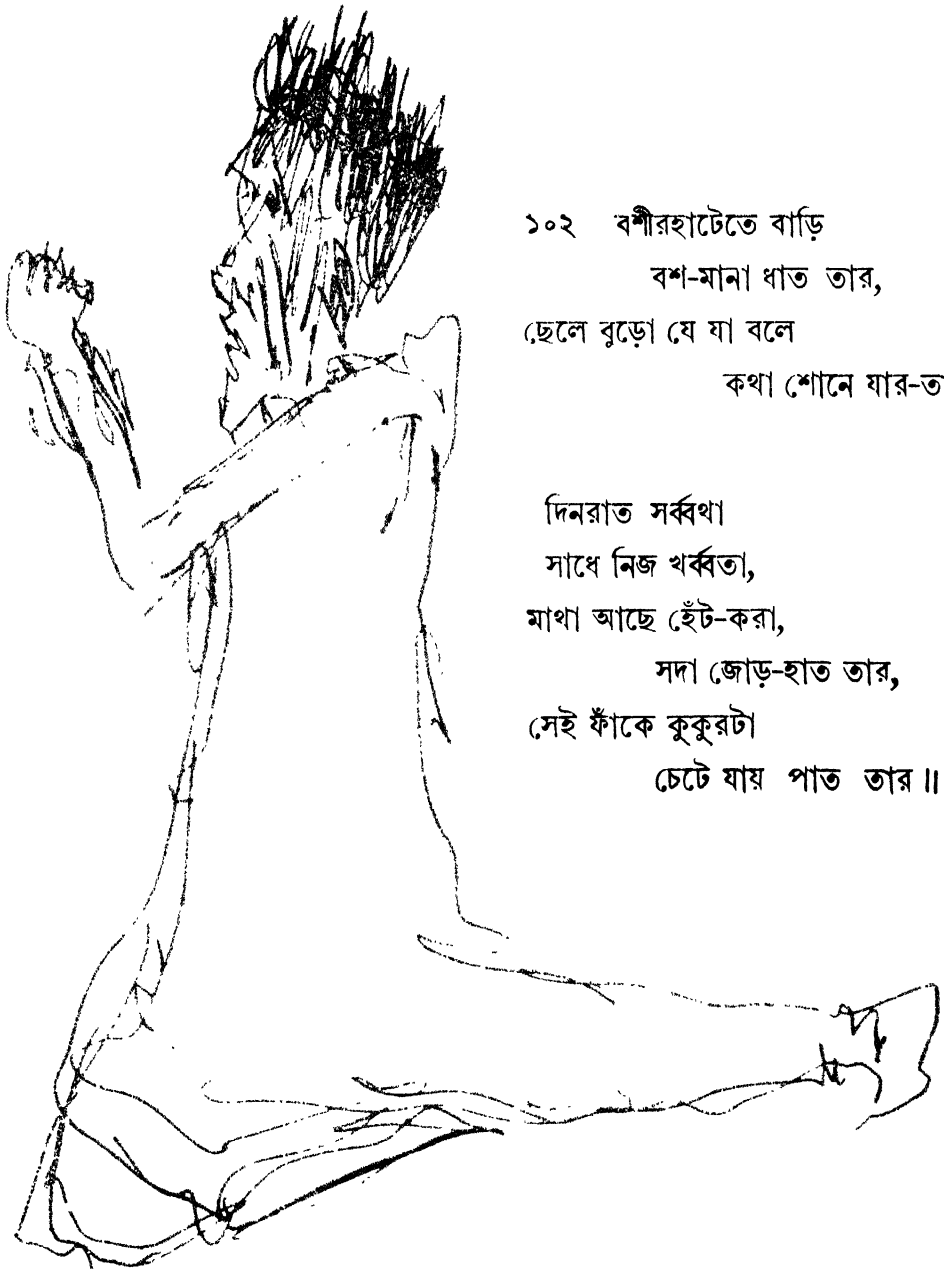 ১০২ বশীরহাটেতে বাড়ি
বশ-মানা ধাত তার,
ছেলে বুড়ো যে যা বলে
কথা শোনে যার-ত
দিনরাত সর্ব্বথা
সাধে নিজ খর্ব্বতা,
মাথা আছে হেঁট-করা,
সদা জোড়-হাত তার,
সেই ফাঁকে কুকুরটা
চেটে যায় পাত তার॥